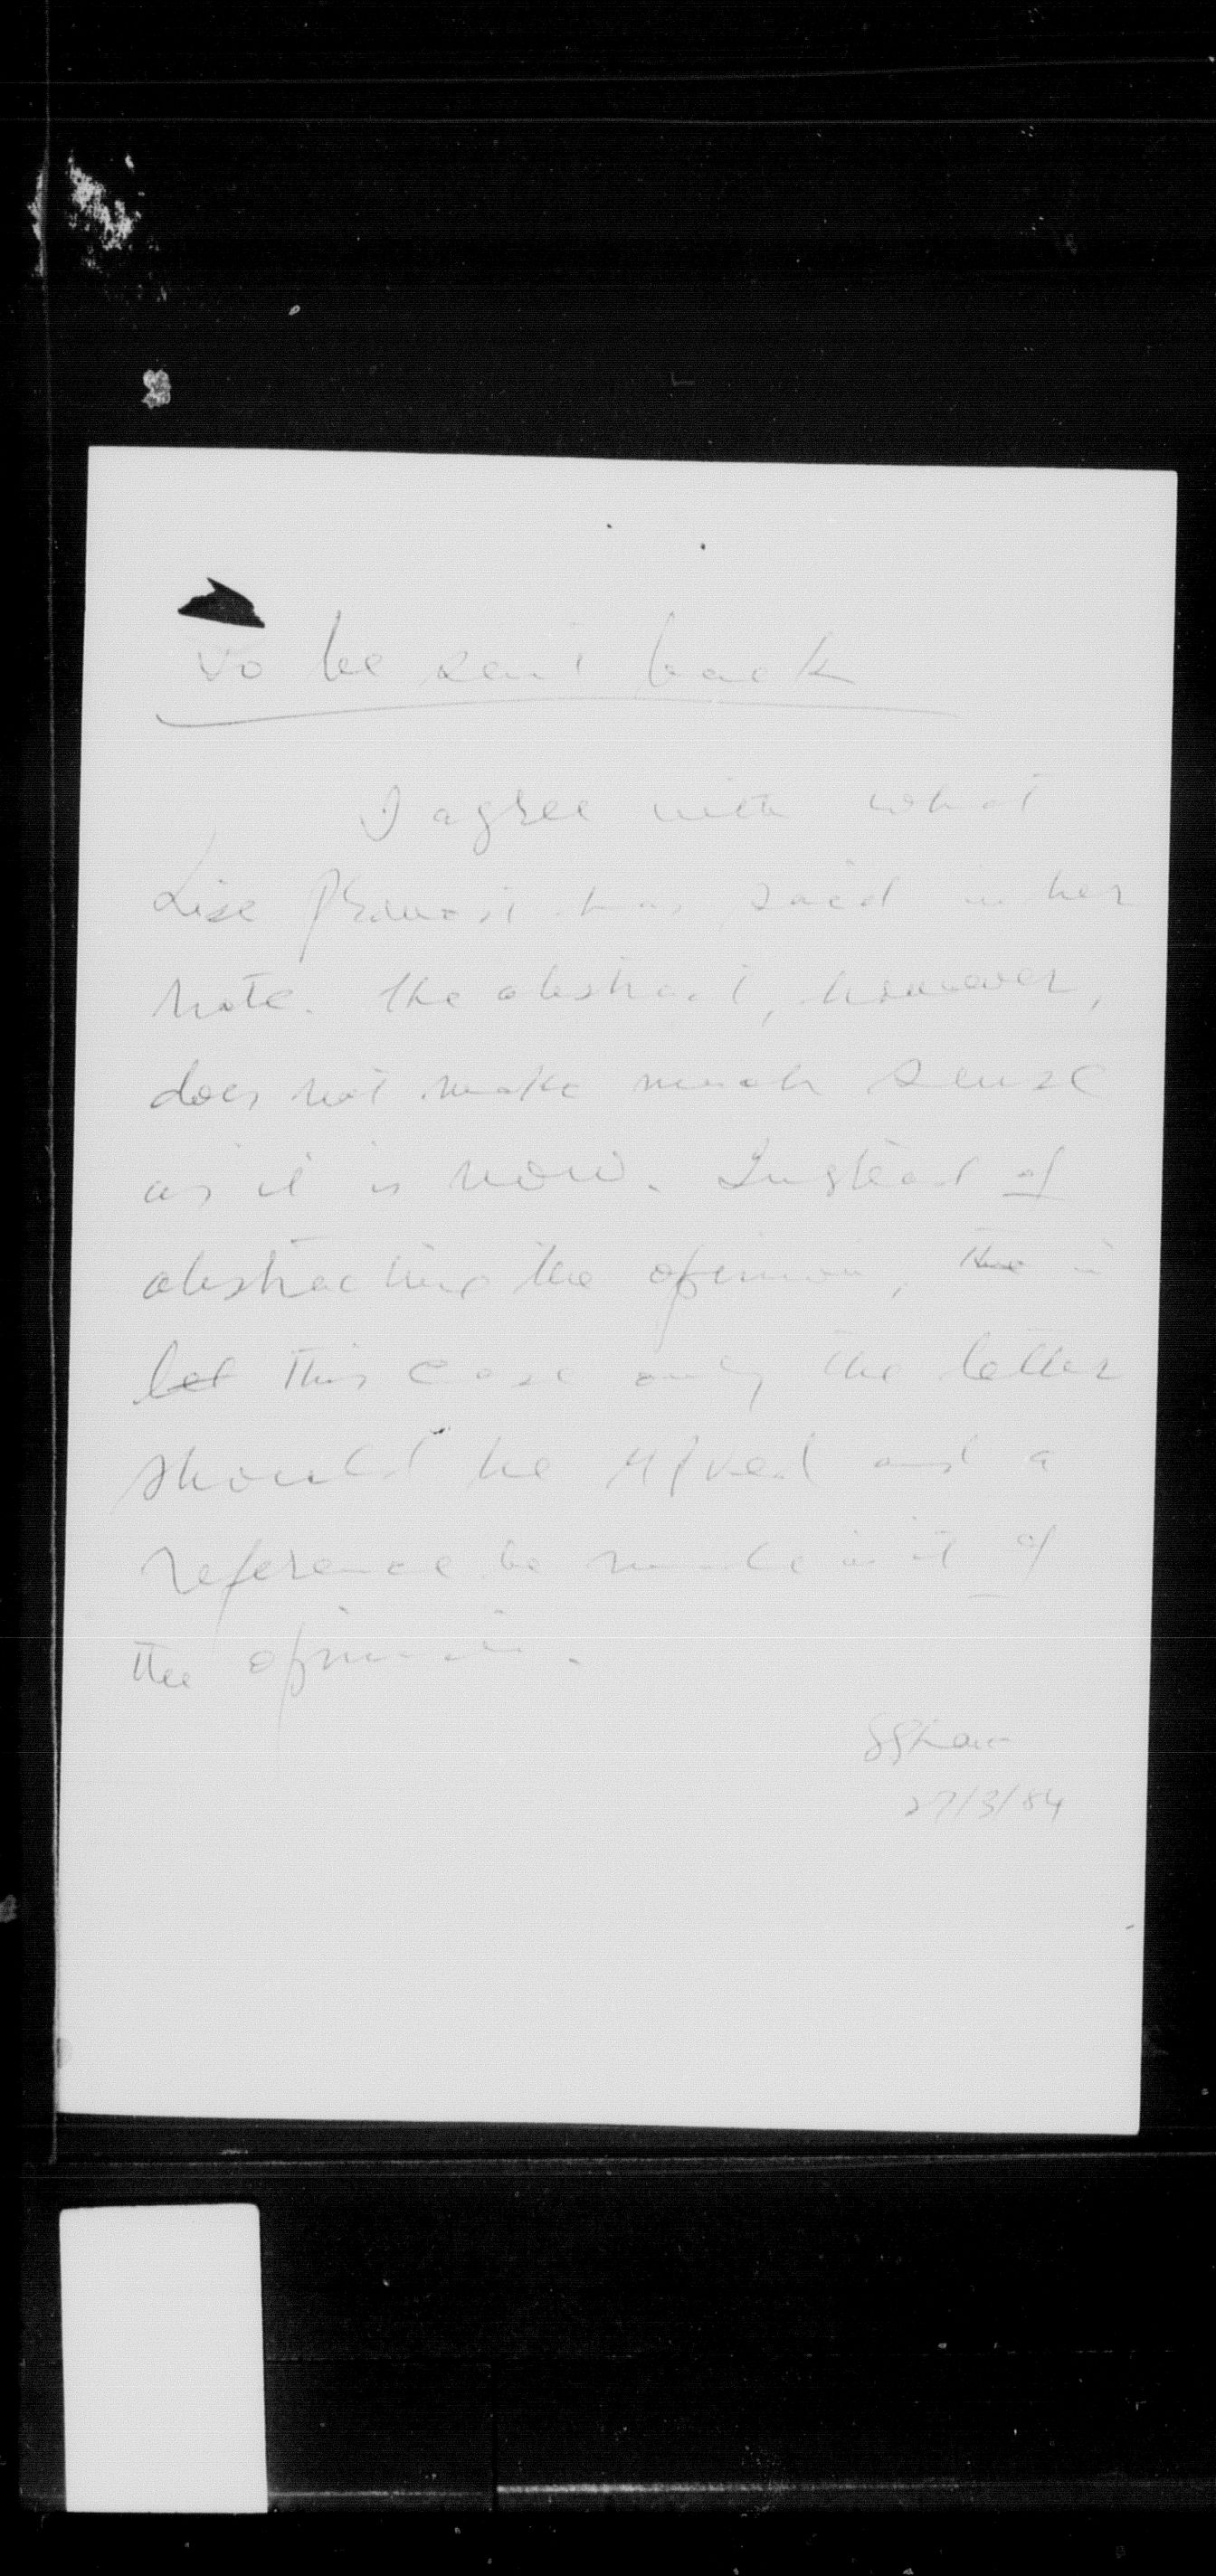 To be sent back
I agree with what
Lise has said in her
note. The abstract, however,
does not make much sense
as it is now. Instead of
abstracting the opinion, the in
let this case only the letter
should be and a
reference be made in it of
the opinion.
27/3/84